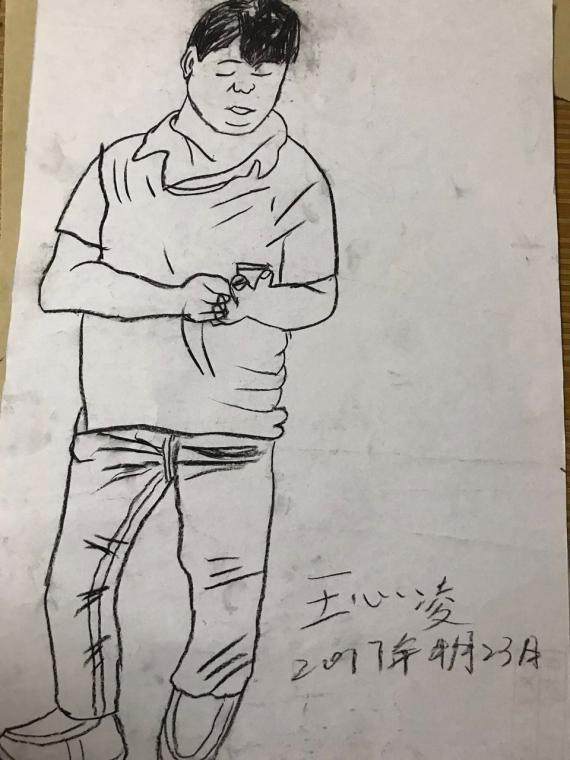 王心凌
2017年4月23月